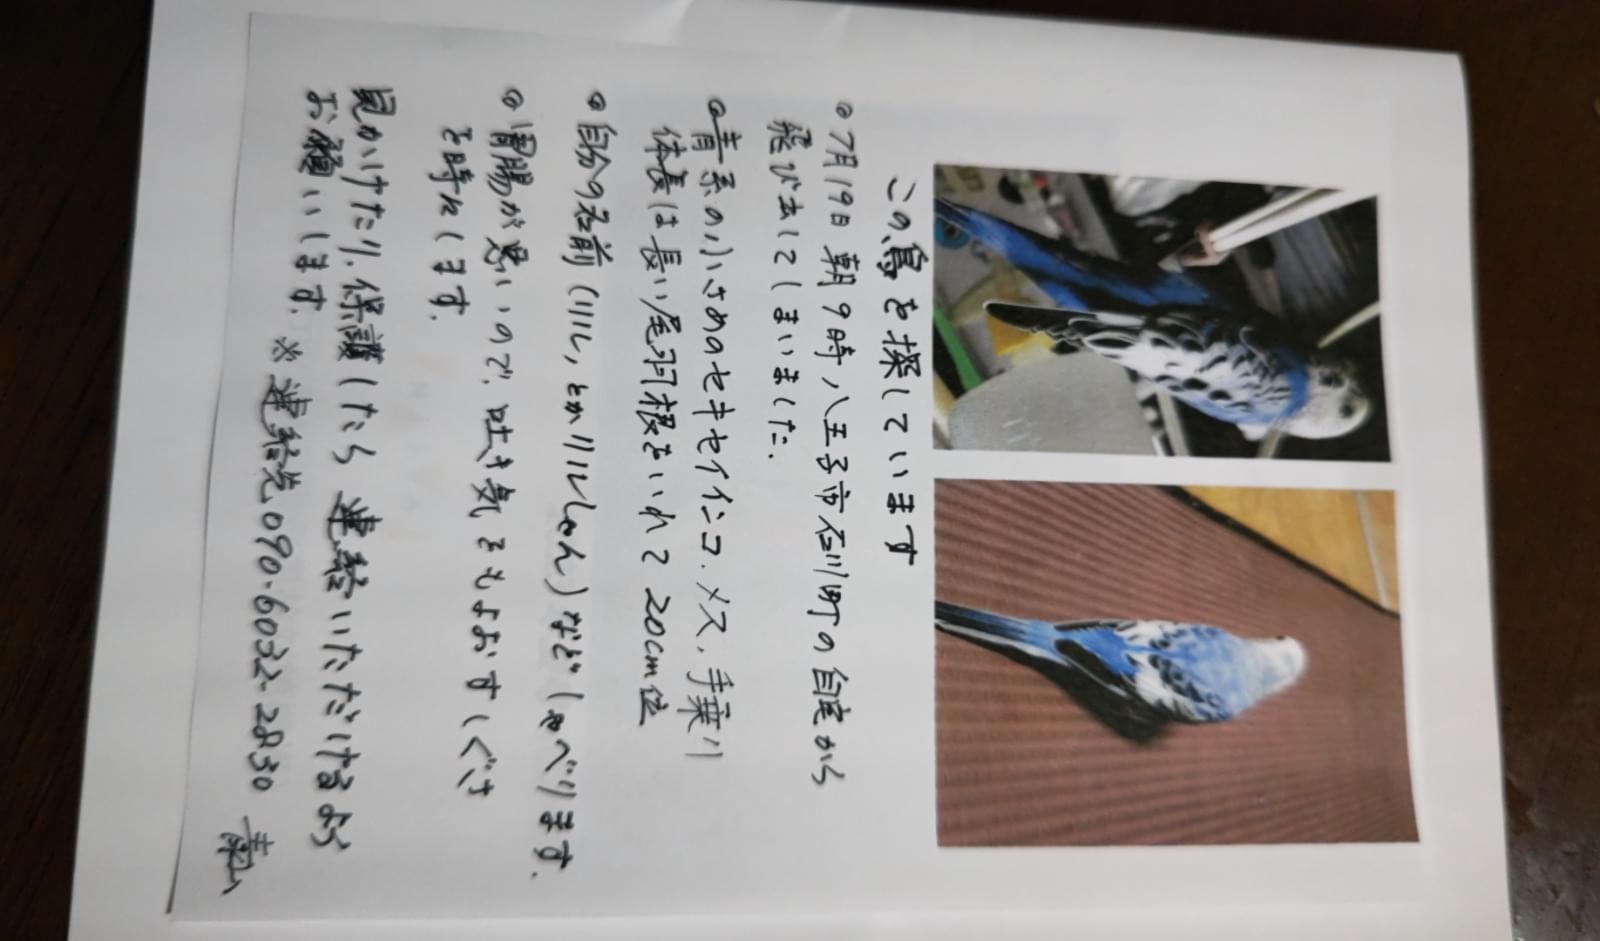 この鳥を探しています
◦ 7月19日 朝9時 八王子市石川町の自宅から
飛び去してしまいました.
◦ 青系の小さめのセキセイインコ. メス, 手乗り
体長は長い尾羽根をいれて 20cm位
◦ 自分の名前(リル, とかリルしゃん)などしゃべります.
◦ 胃腸が悪いので, 吐き気をもよおすしぐさ
を時にします.
見かけたり, 保護したら 連絡いただけるよう
お願いします. ※ 連絡先 090-6032-2830